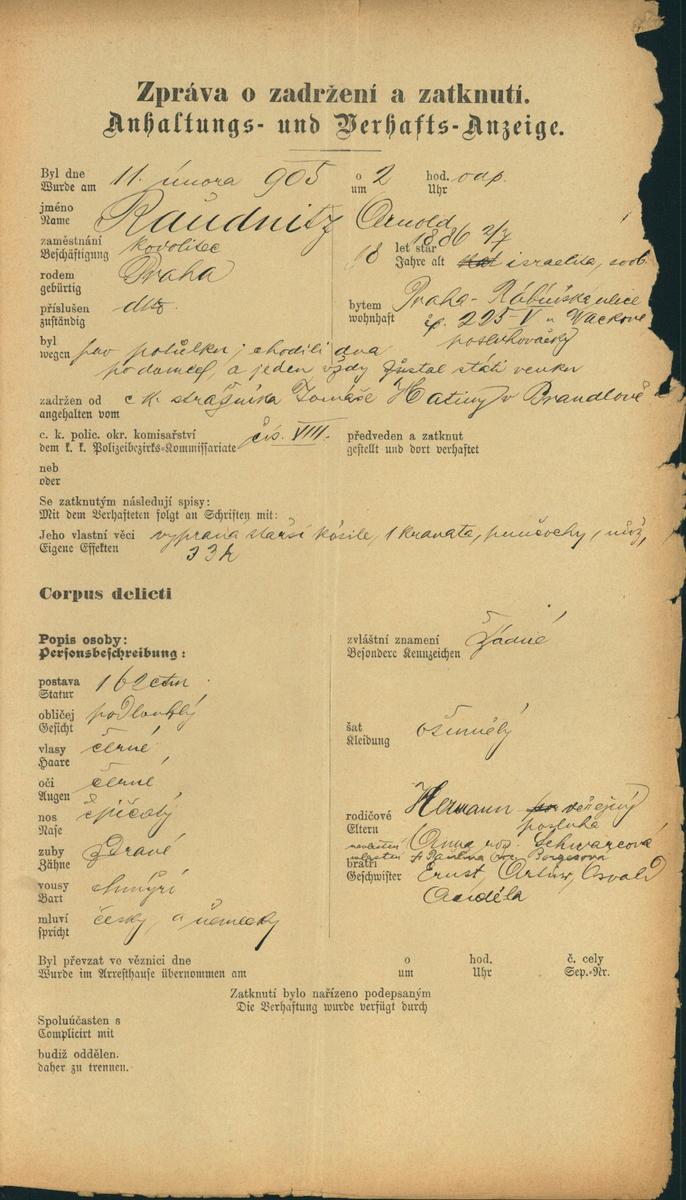 Zpráva o zadržení a zatknutí.
Anhaltungs- und Verhafts-Anzeige.
Byl dne
Wurde am
11. února 905
o
um
2
hod.
Uhr
odp.
jméno
Name
Raudnitz Arnold
zaměstnání
Beschäftigung
kovolitec
18
let stár
Jahre alt
1886 2/7
israelita, svob.
rodem
gebürtig
Praha
příslušen
zuständig
dtto
bytem
wohnhaft
Praha - ulice
čp. 225 V u Wackové
posluhovačky
byl
wegen
pro potulku; chodili dva
po domech a jeden vždy zůstal státi venku
zadržen od
angehalten vom
c k. strážníka Tomáše v Brandlově
c. k. polic. okr. komisařství
dem k. k. Polizeibezirks-Kommissariate
čís. VIII.
předveden a zatknut
gestellt und dort verhaftet
neb
oder
Se zatknutým následují spisy:
Mit dem Verhafteten folgt an Schriften mit:
Jeho vlastní věci
Eigene Effekten
vyprana starší košile, 1 kravata, punčochy, nůž,
33 h
Corpus delicti
Popis osoby:
Personsbeschreibung:
zvláštní znamení
Besondere Kennzeichen
Žádné
postava
Statur
162 ctm
obličej
Gesicht
podlouhlý
šat
Kleidung
ošumělý
vlasy
Haare
černé
oči
Augen
černé
nos
Nase
špičatý
rodičové
Eltern
Hermann veřejný
posluha
nevlastní Anna roz. Schwarzová
vlastní Paulina roz. Bergerova
zuby
Zähne
Zdravé
bratří
Geschwister
Ernst, Artur, Osvald
vousy
Bart
chmýří
mluví
spricht
česky a německy
Byl převzat ve věznici dne
Wurde im Arresthause übernommen am
o
um
hod.
Uhr
č. cely
Sep.-Nr.
Zatknutí bylo nařízeno podepsaným
Die Verhaftung wurde verfügt durch
Spoluúčasten s
Complicirt mit
budiž oddělen.
daher zu trennen.